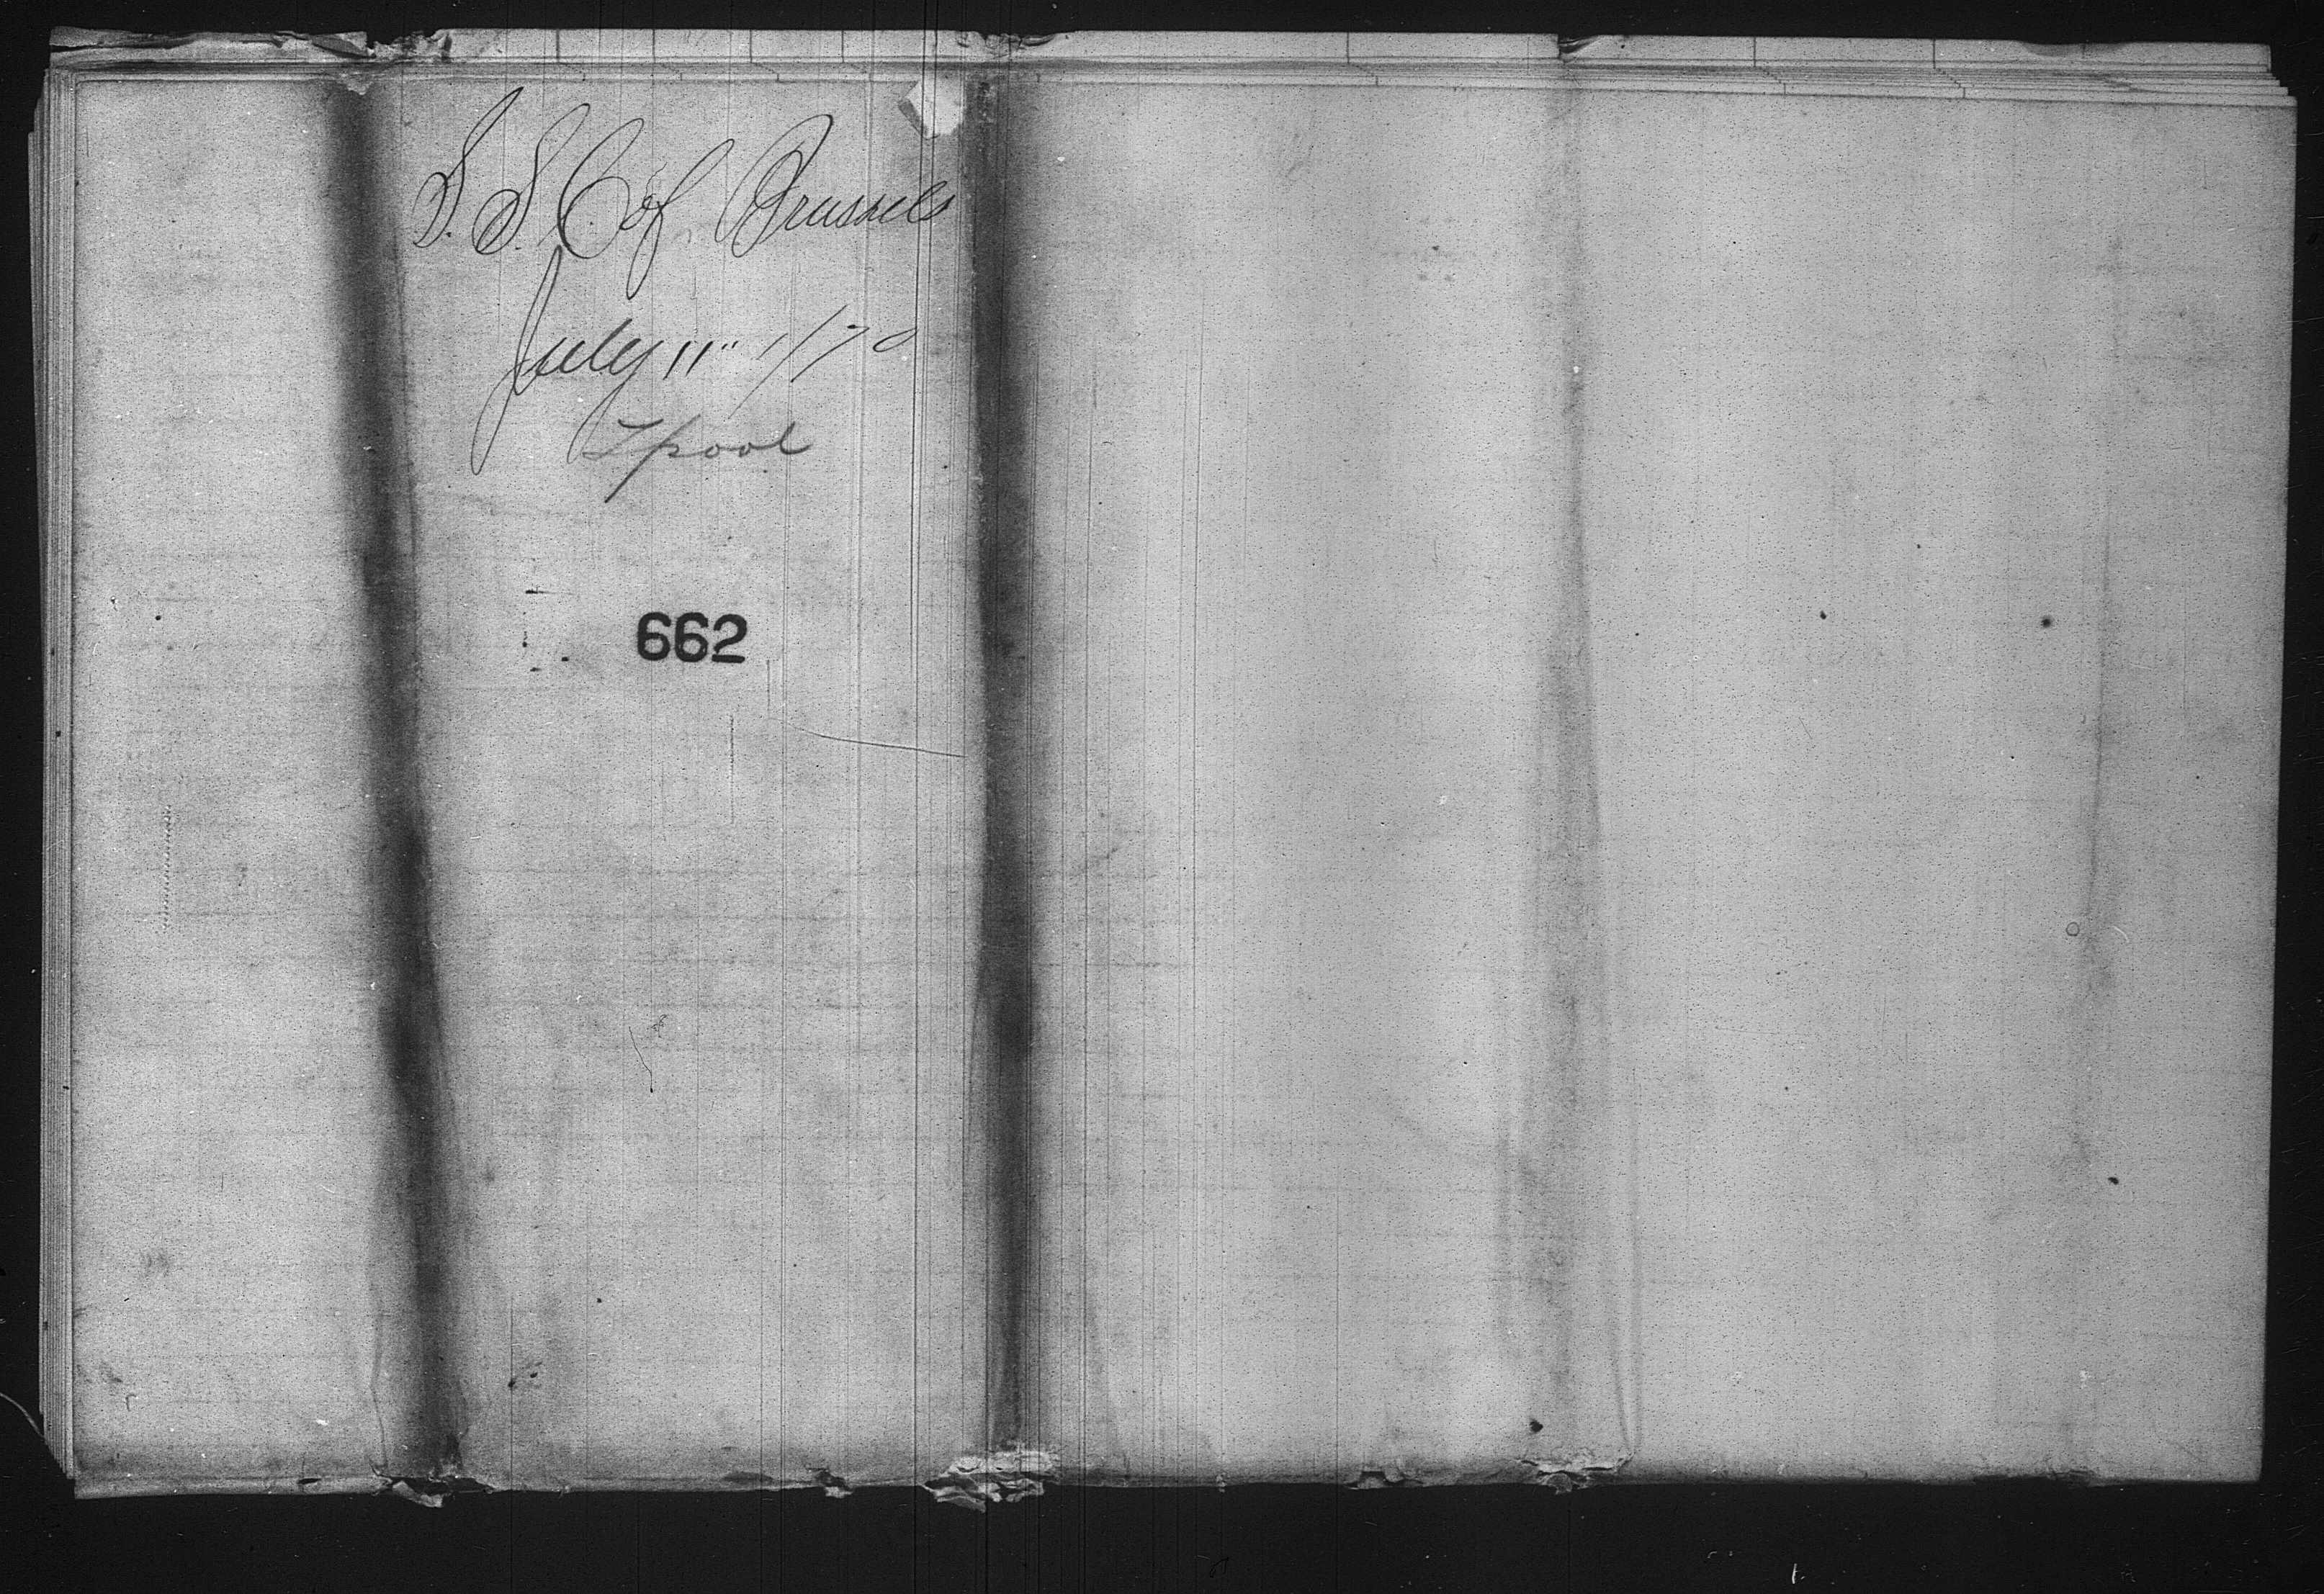 S. S. C. of Brussels
July 11" 1/70
Lpool
662